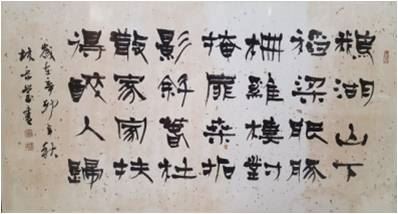 鵝湖山下
稻粱肥豚
柵雞棲對
掩扉桑柘
影斜春社
散家家扶
得醉人歸
歲在辛卯之秋
林書